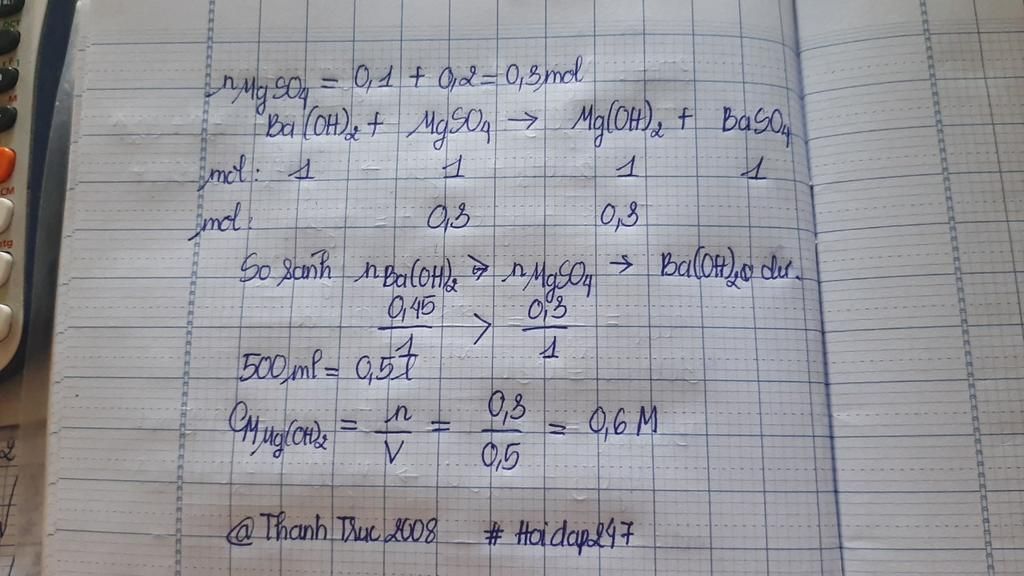 nMgSO₄ = 0,1 + 0,2 = 0,3 mol
Ba(OH)₂ + MgSO₄ → Mg(OH)₂ + BaSO₄
mol: 1 1 1 1
mol: 0,3 0,3
So sánh nBa(OH)₂ > nMgSO₄ → Ba(OH)₂ dư.
0,45/1 > 0,3/1
500ml = 0,5l
CM Mg(OH)₂ = n/V = 0,3/0,5 = 0,6 M
@Thanh Truc 2008 # Hoidap247